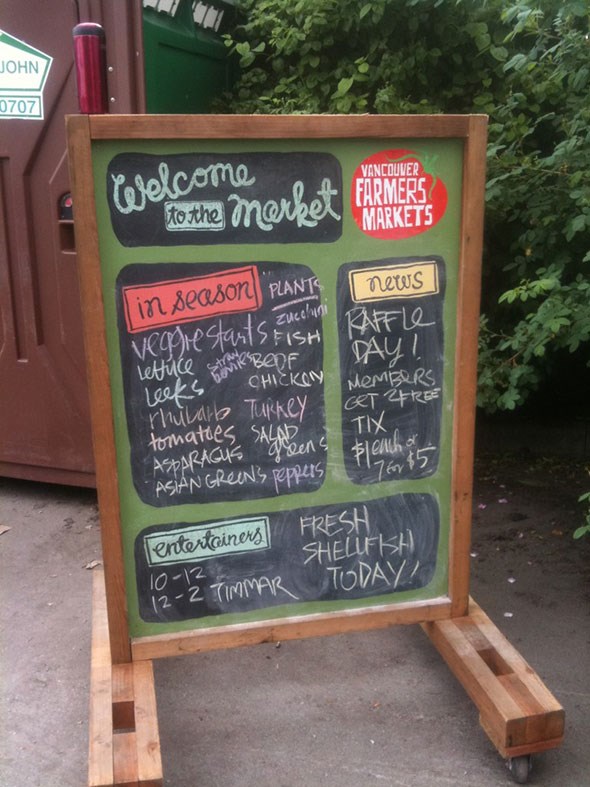 JOHN
0707
Welcome
to the market
VANCOUVER
FARMERS
MARKETS
in season
veggie starts
lettuce
leeks
rhubarb
tomatoes
ASPARAGUS
ASIAN GREENS
PLANTS
zucchini
FISH
strawberries
BEEF
CHICKEN
TURKEY
SALAD
greens
peppers
news
RAFFLE
DAY!
MEMBERS
GET 2 FREE
TIX
$1 each or
7 for $5
entertainers
10-12
12-2 TIMMAR
FRESH
SHELLFISH
TODAY!